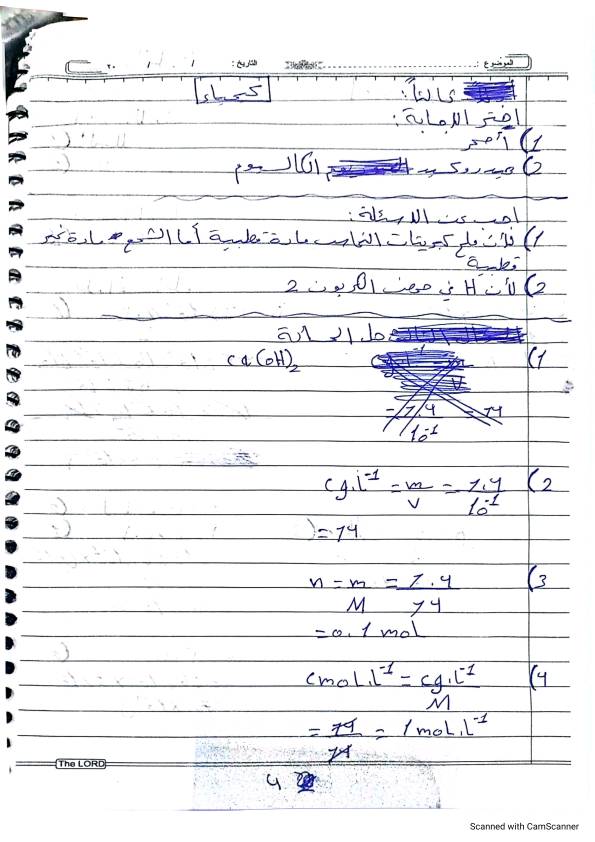 الموضوع : التاريخ : / / ٢٠
ثالثاً: كيمياء
اختر الإجابة:
1) أصفر
2) هيدروكسيد الكالسيوم
اجب عن الاسئلة:
1) لأن ملح كبريتات النحاس مادة قطبية أما الشمع مادة غير
قطبية
2) لأن H في حمض الكربون 2
حل المسألة
1) Ca(OH)2
= 7.4 = 74
10^-1
2) Cg.l^-1 = m/V = 7.4/10^-1
= 74
3) n = m/M = 7.4/74
= 0.1 mol
4) Cmol.l^-1 = Cg.l^-1/M
= 74/74 = 1 mol.l^-1
The LORD
4
Scanned with CamScanner